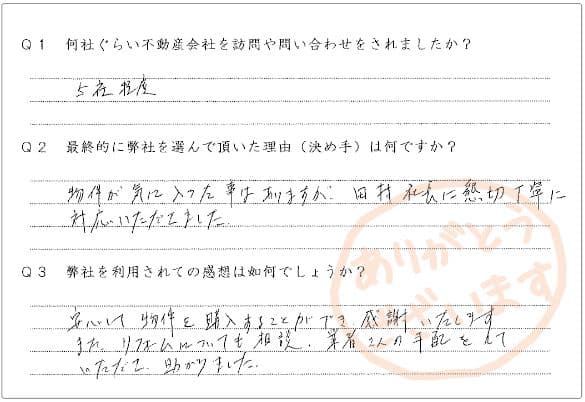 Q1 何社ぐらい不動産会社を訪問や問い合わせをされましたか？
5社程度
Q2 最終的に弊社を選んで頂いた理由（決め手）は何ですか？
物件が気に入った事はありますが、田村社長に懇切丁寧に
対応いただきました。
Q3 弊社を利用されての感想は如何でしょうか？
安心して物件を購入することができ、感謝いたします
また リフォームについても相談、業者さんの手配をして
いただき、助かりました。
ありがとう
ございます